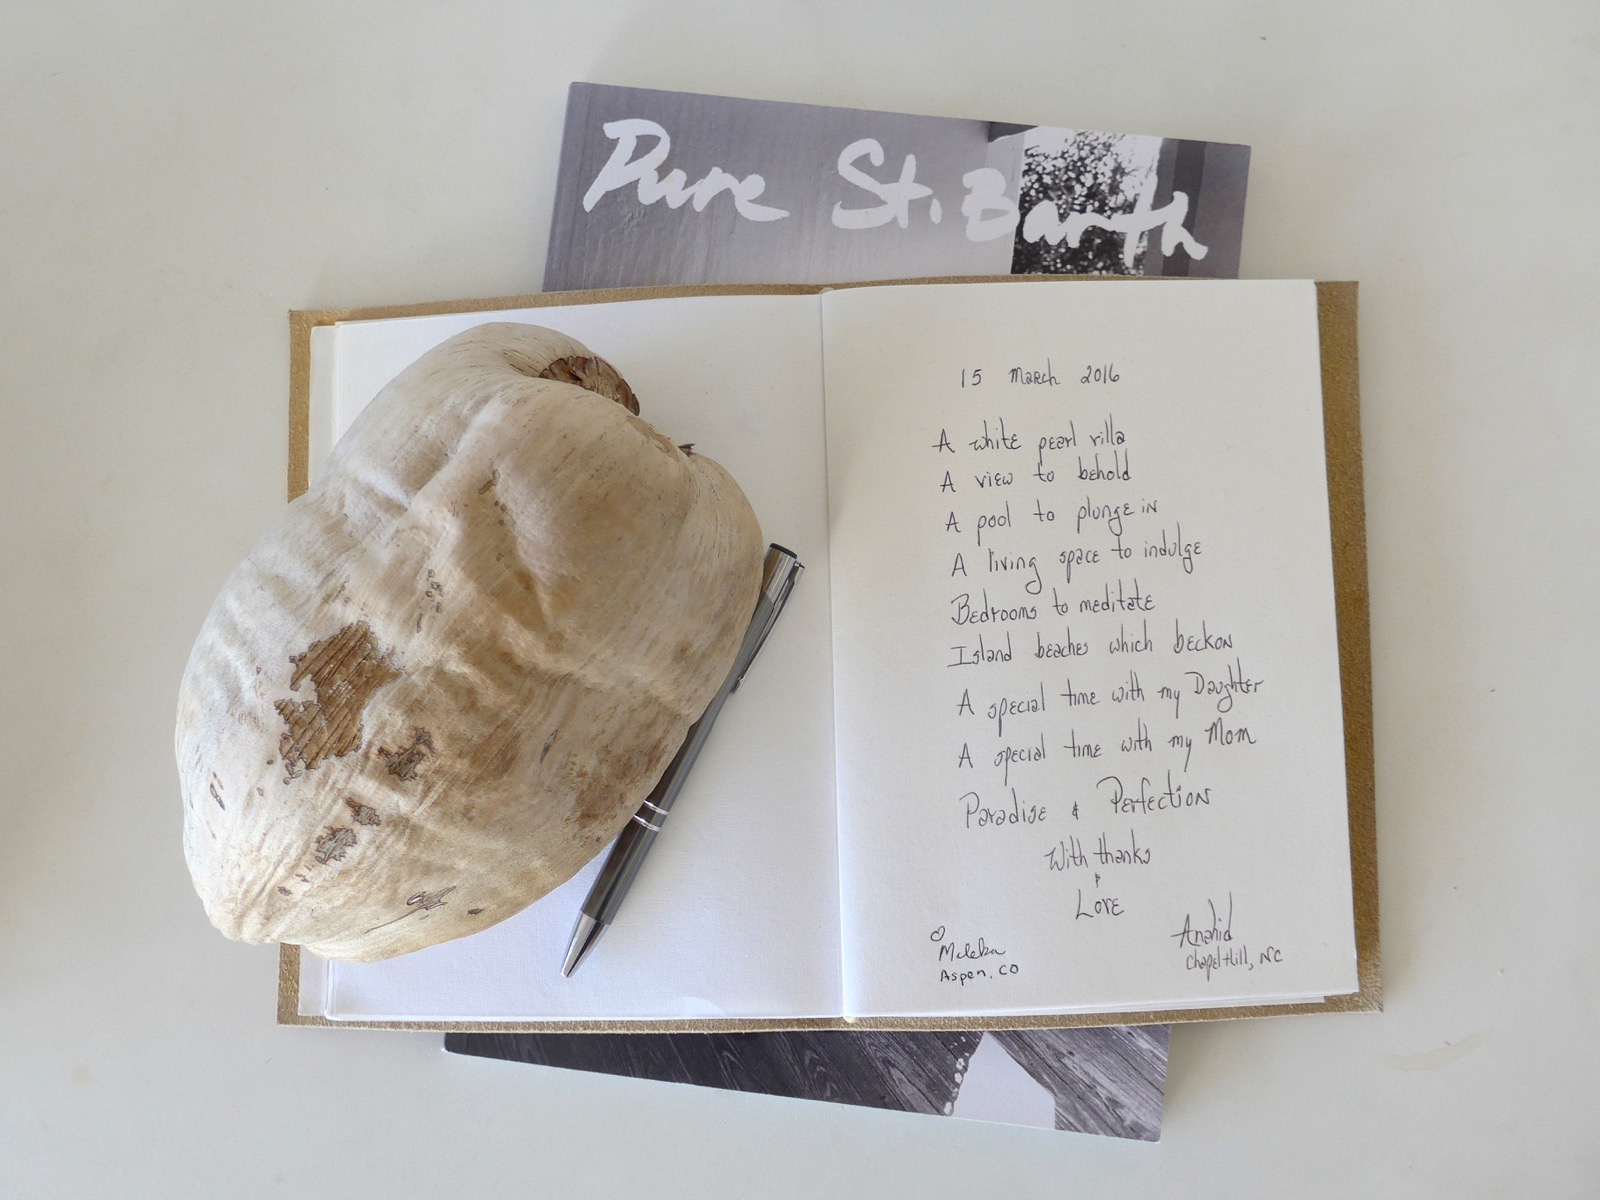 Pure St. Barth
15 March 2016
A white pearl villa
A view to behold
A pool to plunge in
A living space to indulge
Bedrooms to meditate
Island beaches which beckon
A special time with my Daughter
A special time with my Mom
Paradise & Perfection
With thanks
&
Love
♡
Meleka
Aspen, CO
Anahid
Chapel Hill, NC